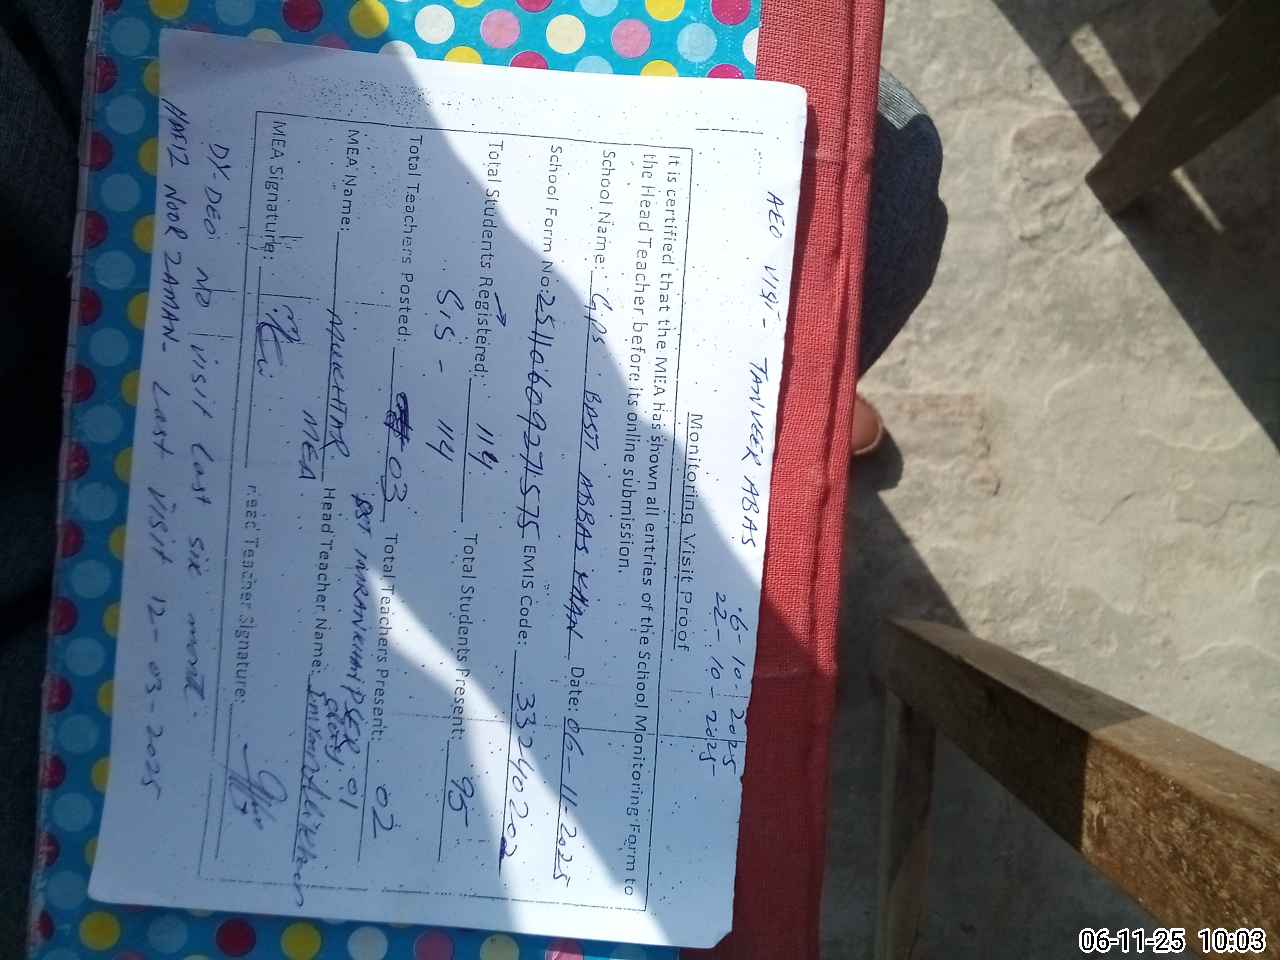 AEO VISIT- TANVEER ABAS 6-10-2025
22-10-2025
Monitoring Visit Proof
It is certified that the MEA has shown all entries of the School Monitoring Form to
the Head Teacher before its online submission.
School Name: GPS BASTI ABBAS KHAN Date: 06-11-2025
School Form No: 25110609271575 EMIS Code: 33240202
Total Students Registered: 114 Total Students Present: 95
SIS - 114
Total Teachers Posted: 03 Total Teachers Present: 02
PST IMRAN KHAN PSER 01
duty
MEA Name: MUKHTAR Head Teacher Name: Imran Ali Khan
MEA
MEA Signature: Head Teacher Signature:
DY. DEO NO VISIT Last six month.
HAFIZ NOOR ZAMAN- Last VISIT 12-03-2025
06-11-25 10:03